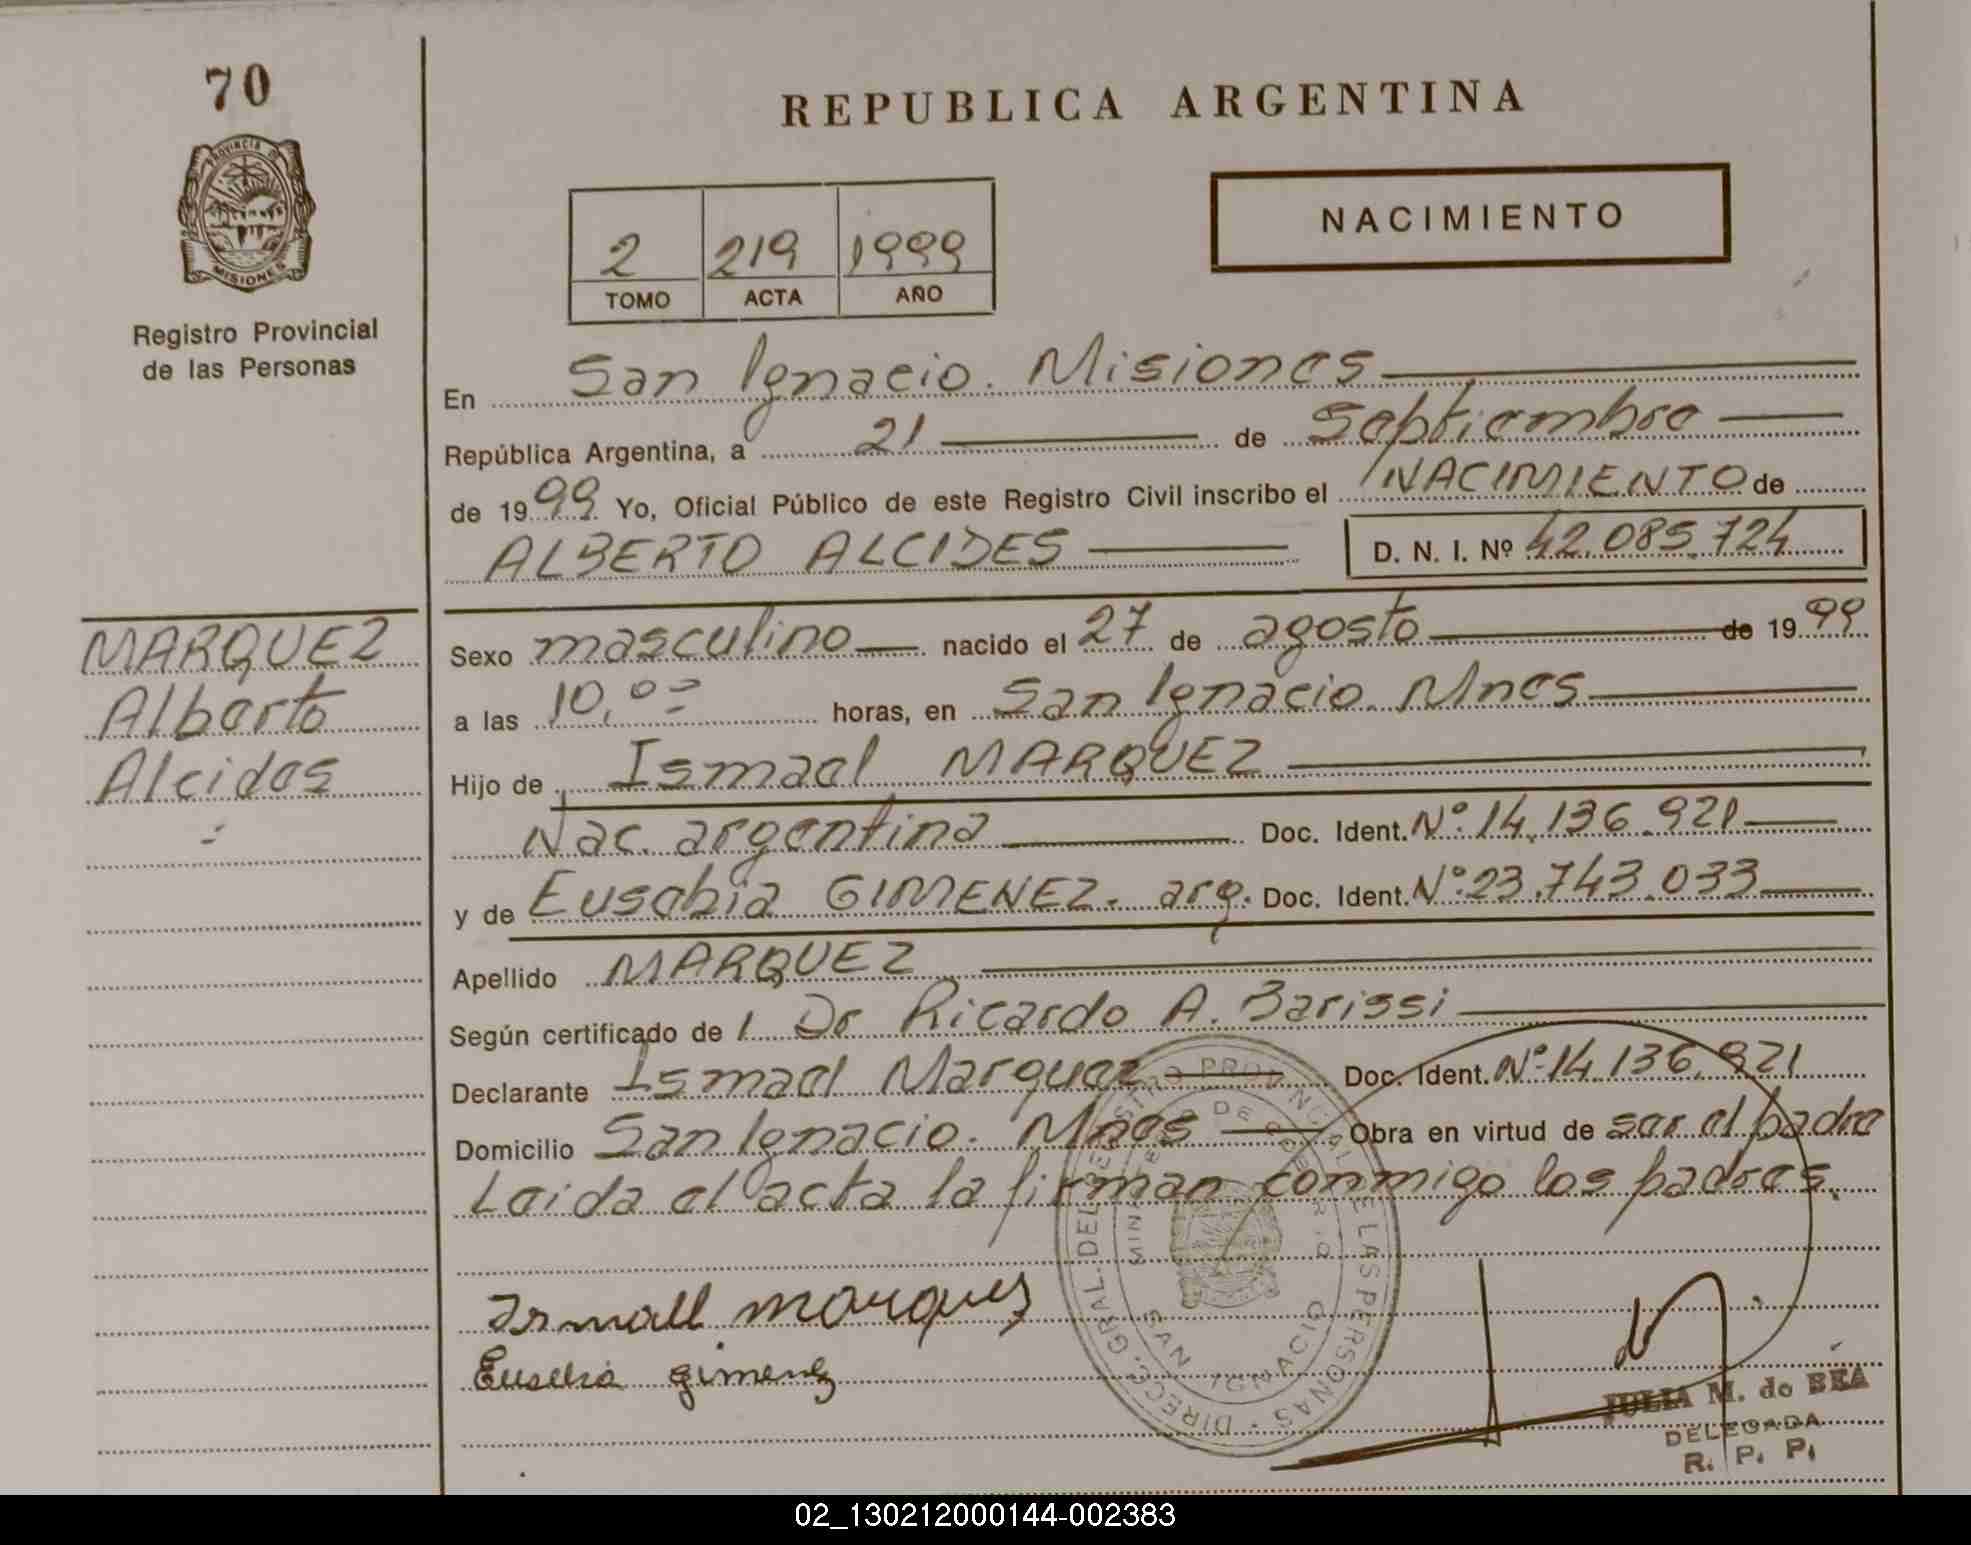 70
PROVINCIA DE
MISIONES
Registro Provincial
de las Personas
MARQUEZ
Alberto
Alcides
REPUBLICA ARGENTINA
2 219 1999
TOMO ACTA AÑO
NACIMIENTO
En San Ignacio. Misiones
República Argentina, a 21 de Septiembre
de 1999 Yo, Oficial Público de este Registro Civil inscribo el NACIMIENTO de
ALBERTO ALCIDES D. N. I. Nº 42.085.724
Sexo masculino nacido el 27 de agosto de 1999
a las 10,00 horas, en San Ignacio. Mnes
Hijo de Ismael MARQUEZ
Nac. argentina Doc. Ident. Nº 14.136.921
y de Eusebia GIMENEZ. arg. Doc. Ident. Nº 23.743.033
Apellido MARQUEZ
Según certificado de l Dr Ricardo A. Barissi
Declarante Ismael Marquez Doc. Ident. Nº 14.136.921
Domicilio San Ignacio. Mnes Obra en virtud de ser el padre
Leida el acta la firman conmigo los padres.
Ismael marquez
Eusebia gimenez
DIREC. GRAL. DEL REGISTRO PROVINCIAL DE LAS PERSONAS
MINISTERIO DE GOBIERNO
SAN IGNACIO
JULIA M. de BEA
DELEGADA
R. P. P.
02_130212000144-002383